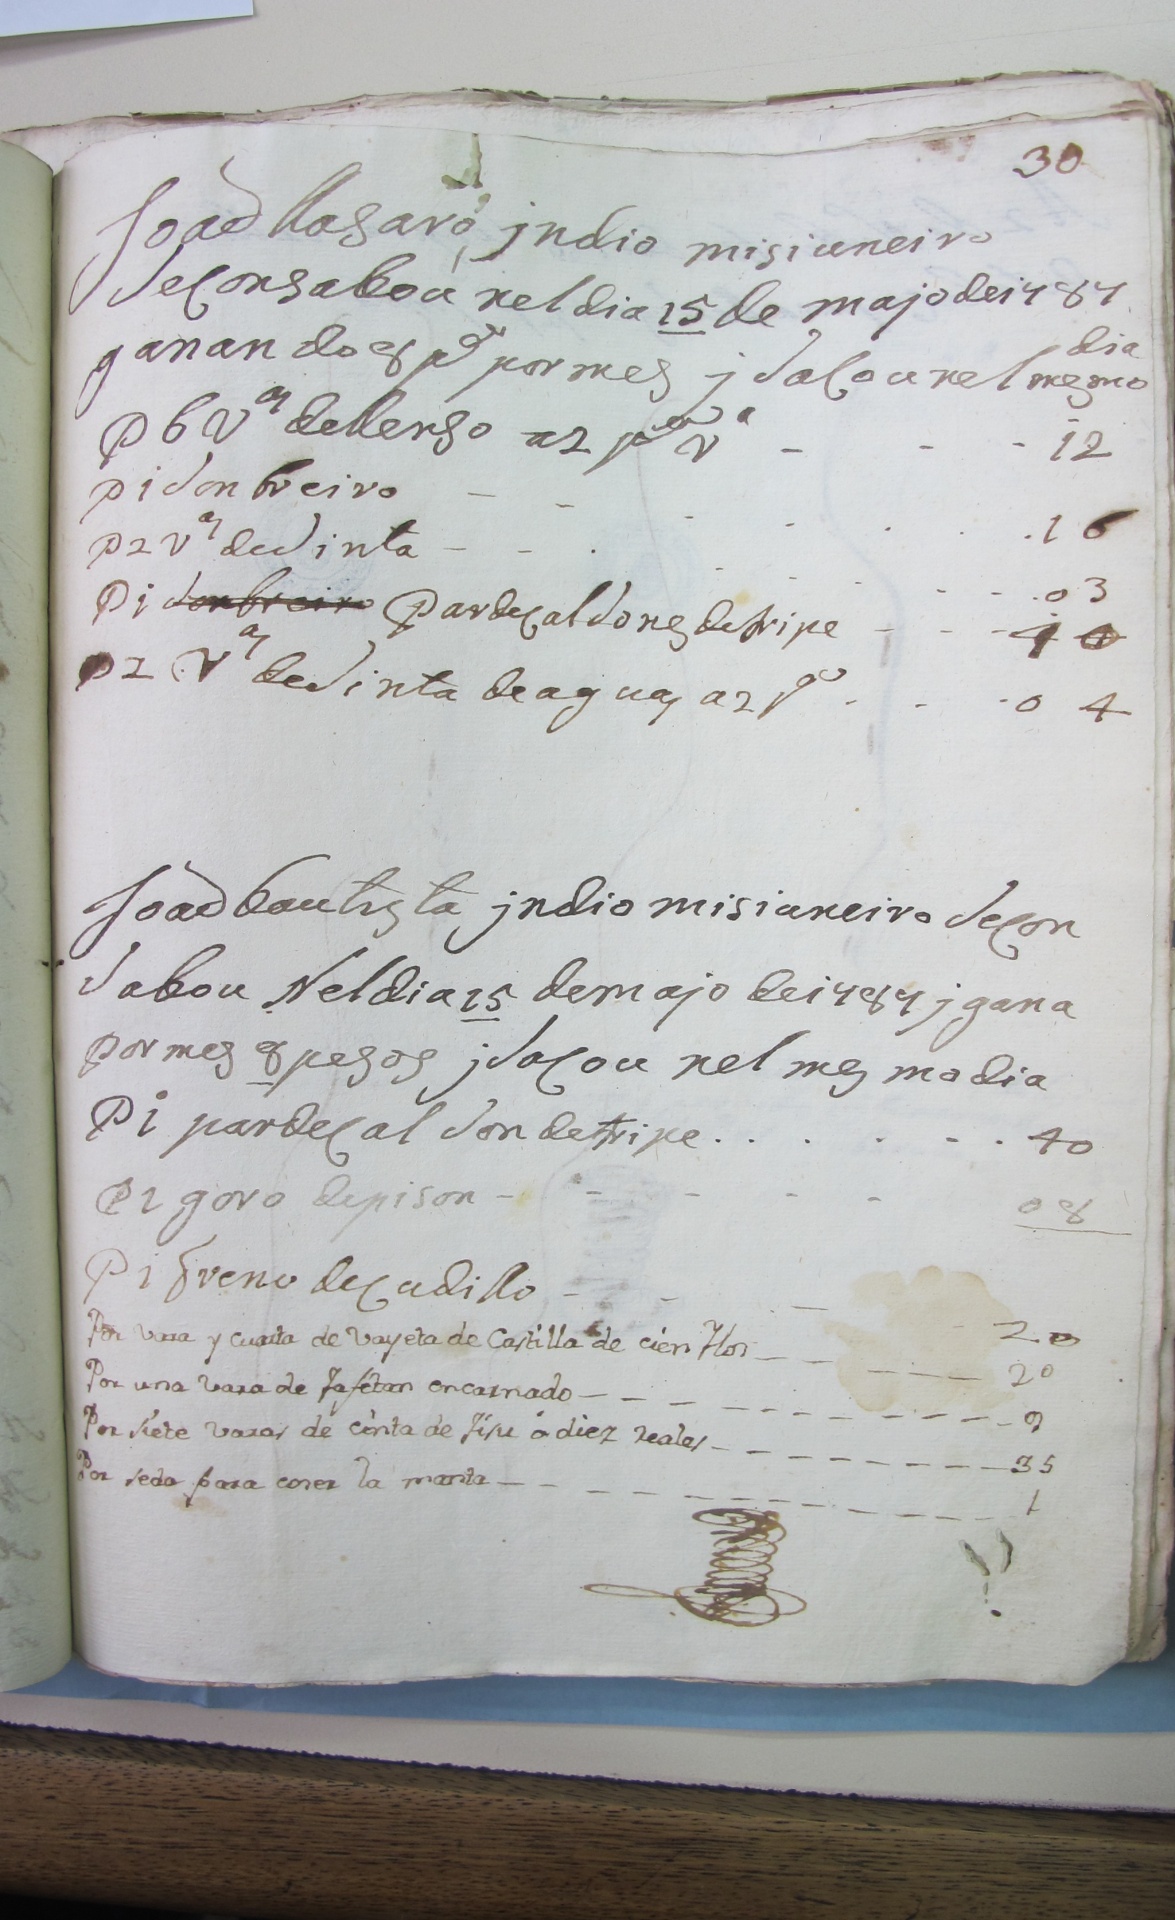 30
Joaõ llasaro jndio misiuneiro
seConsabou nel dia 15 de majo de 1787
ganando 8 ps por mes j saCou nel mesmo dia
P 6 Vas de llenso a 2 ps Va - - - 12
P 1 sonbreiro - - - - - 16
P 2 Vas de sinta - - - - - 03
P 1 sonbreiro Par de Calsones de tripe - - - 40
P 2 Vas de sinta de aguas a 2 ps - - - 04
Joaõ bautista jndio misiuneiro se Con
sabou Nel dia 15 de majo de 1787 j gana
por mes 8 pesos j saCou nel mesmo dia
P 1 par de Calson de tripe - - - 40
P 1 goro de pison - - - - - 08
P 1 freno de Cudillo - - - 20
Por vara y cuarta de Vayeta de Castilla de cien Hlos - - - 20
Por una vara de Tafetan encarnado - - - 9
Por siete varas de cinta de Tisu á diez reales - - - 35
Por seda para coser la manta - - - 1